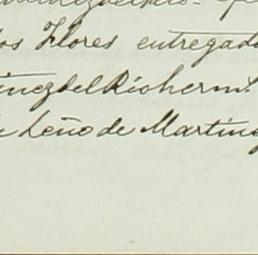 los Flores entregad
inez del Rio herm.
Leño de Martine